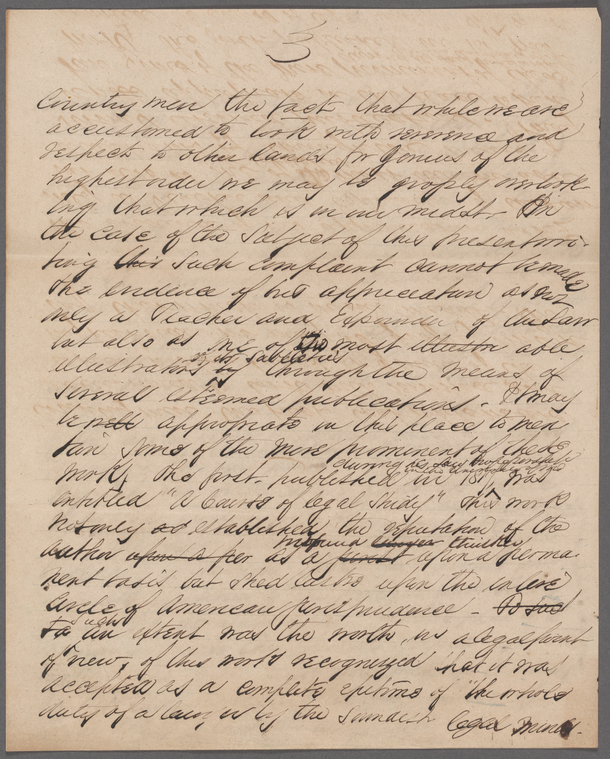 3
Country men the fact that while we are
accustomed to look with reverence and
respect to other lands for Genius of the
highest order we may be grossly overlook-
ing that which is in our midst. In
the case of the Subject of this present wri-
ting this such complaint cannot be made
the evidence of his appreciation as not
only a Teacher and Expounder of the Law
but also as one of the most able
Illustrators of its by through the means of
several esteemed publications. It may
be well appropriate in this place to men
tion some of the more prominent of these
during his said professorship
works, the first published in 1817, was
entitled "A Course of legal Study" This work
not only established the reputation of the
profound thinker
author upon a per as a jurist upon a perma
nent basis but shed lustre upon the entire
Circle of American Jurisprudence - To such
such
To an extent was the worth, in a legal point
of view, of this work recognized that it was
accepted as a complete epitome of "the whole
duty of a lawyer by the soundest legal minds.